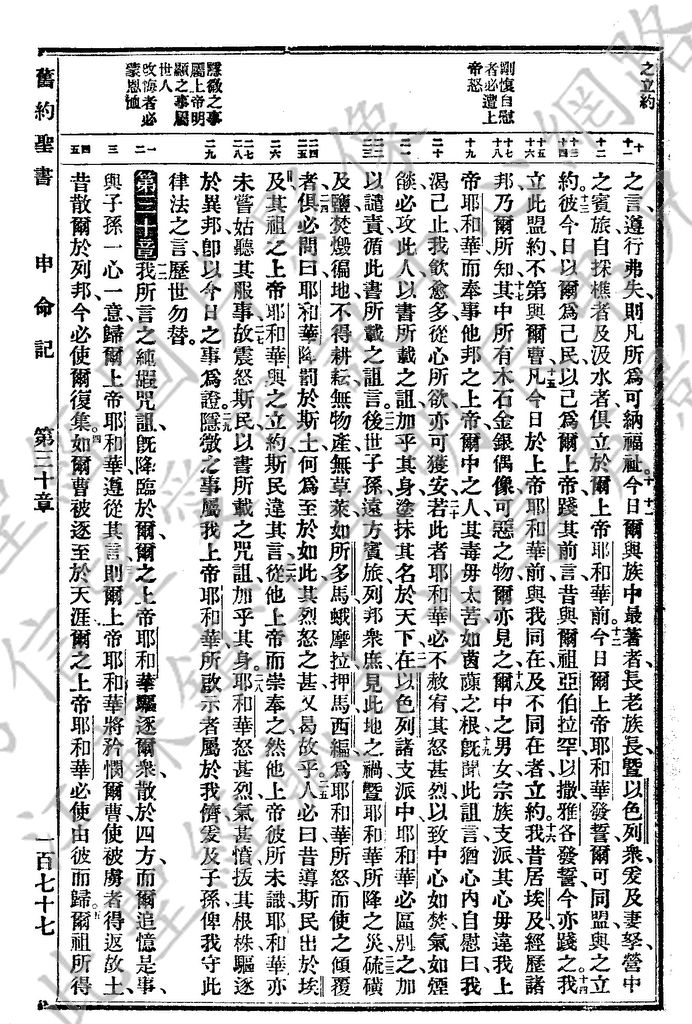 之立約
剛愎自慰
者必遭上
帝怒
隱微之事
屬上帝明
顯之事屬
世人
改悔者必
蒙恩恤
之言遵行弗失則凡所爲可納福祉今日爾與族中最著者長老族長曁以色列衆爰及妻孥營中
之賓旅自採樵者及汲水者俱立於爾上帝耶和華前今日爾上帝耶和華發誓爾可同盟與之立
約彼今日以爾爲己民以己爲爾上帝踐其前言昔與爾祖亞伯拉罕以撒雅各發誓今亦踐之我
立此盟約不第與爾曹凡今日於上帝耶和華前與我同在及不同在者立約我昔居埃及經歷諸
邦乃爾所知其中所有木石金銀偶像可惡之物爾亦見之爾中之男女宗族支派其心毋違我上
帝耶和華而奉事他邦之上帝爾中之人其毒毋太苦如茵蔯之根旣聞此詛言猶心內自慰曰我
渴己止我飮愈多從心所欲亦可獲安若此者耶和華必不赦宥其怒甚烈以致中心如焚氣如煙
燄必攻此人以書所載之詛加乎其身塗抹其名於天下在以色列諸支派中耶和華必區別之加
以譴責循此書所載之詛言後世子孫遠方賓旅列邦衆庶見此地之禍曁耶和華所降之災硫磺
及鹽焚燬徧地不得耕耘無物產無草萊如所多馬蛾摩拉押馬西編爲耶和華所怒而使之傾覆
者俱必問曰耶和華降罰於斯土何爲至於如此其烈怒之甚又曷故乎人必曰昔導斯民出於埃
及其祖之上帝耶和華與之立約斯民違其言從他上帝而崇奉之然他上帝彼所未識耶和華亦
未嘗姑聽其服事故震怒斯民以書所載之咒詛加乎其身耶和華怒甚烈氣甚憤拔其根株驅逐
於異邦卽以今日之事爲證隱微之事屬我上帝耶和華所啟示者屬於我儕爰及子孫俾我守此
律法之言歷世勿替
第三十章我所言之純嘏咒詛旣降臨於爾爾之上帝耶和華驅逐爾衆散於四方而爾追憶是事
與子孫一心一意歸爾上帝耶和華遵從其言則爾上帝耶和華將矜憫爾曹使被虜者得返故土
昔散爾於列邦今必使爾復集如爾曹被逐至於天涯爾之上帝耶和華必使由彼而歸爾祖所得
舊約聖書 申命記 第三十章 一百七十七